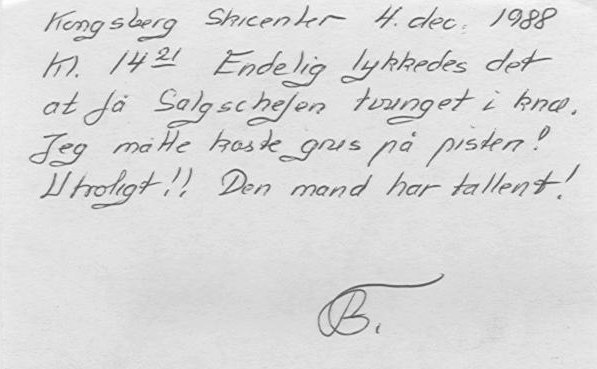 Kongsberg Skicenter 4. dec. 1988
Kl. 14 21 Endelig lykkedes det
at få Salgschefen tvunget i knæ.
Jeg måtte kaste grus på pisten!
Utroligt!! Den mand har tallent!
B.